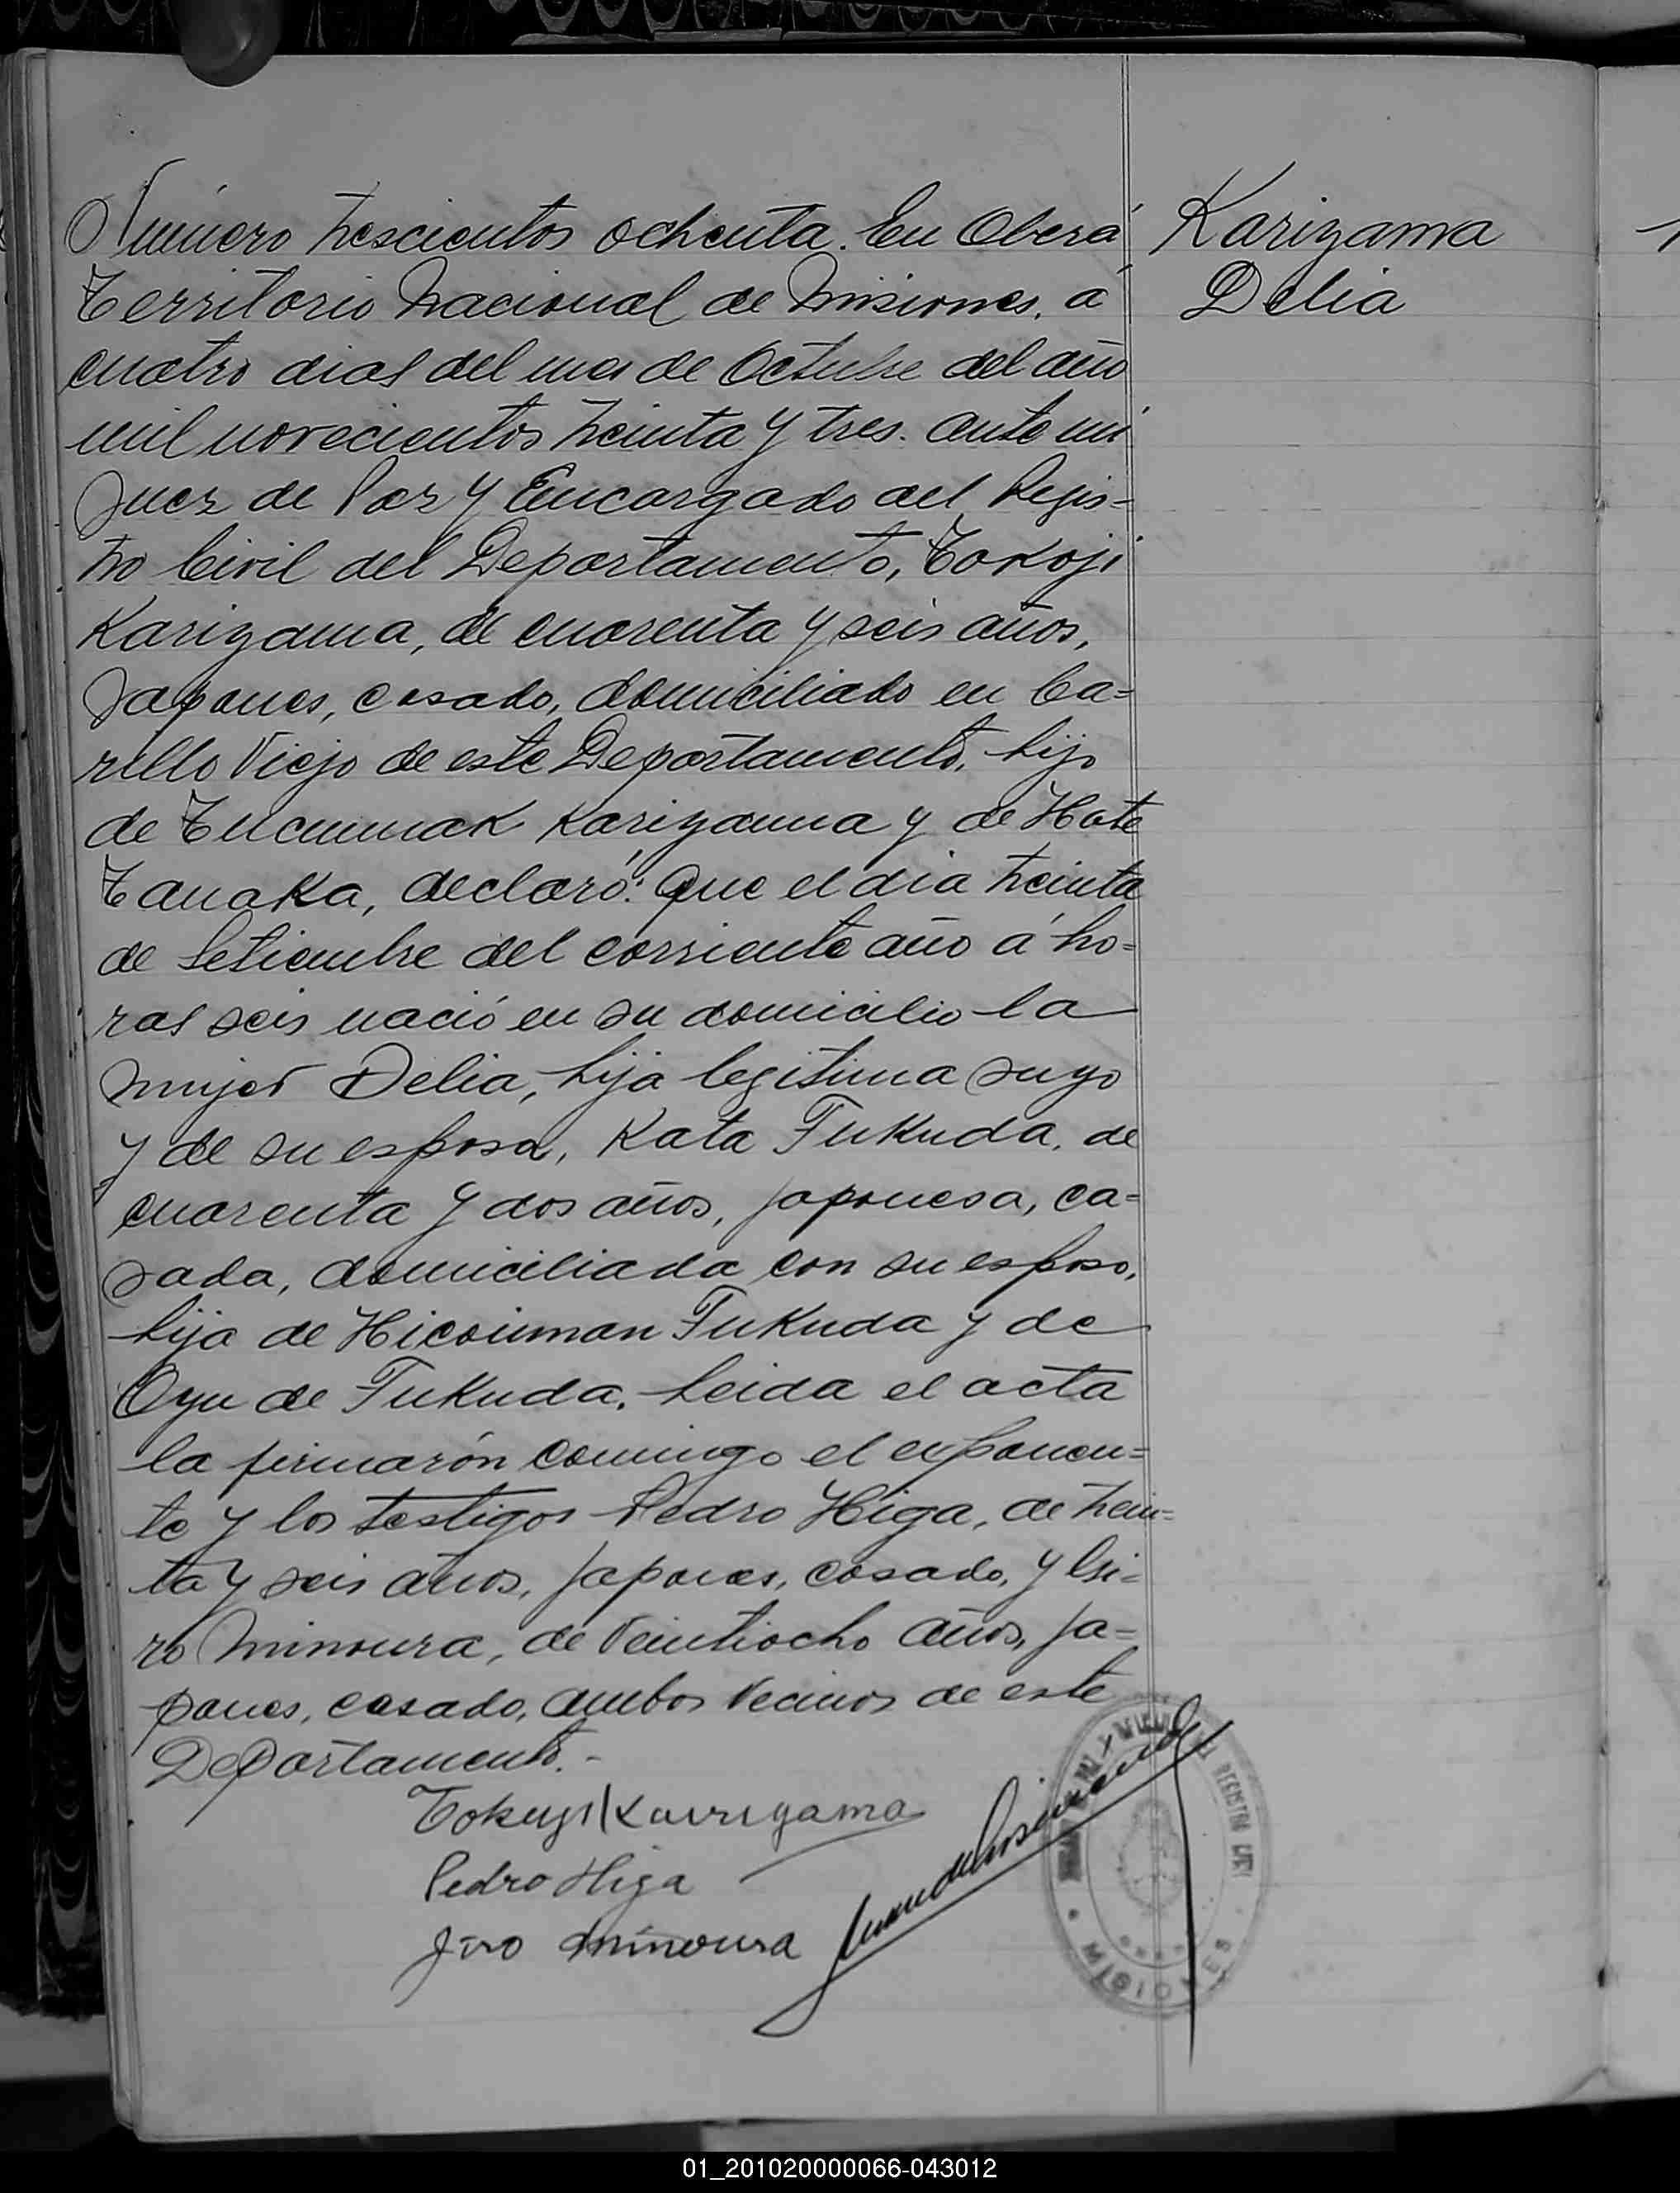 Número trescientos ochenta. En Oberá
Territorio Nacional de Misiones, á
cuatro dias del mes de Octubre del año
mil novecientos treinta y tres. ante mi
Juez de Paz y Encargado del Regis-
tro Civil del Departamento, Tokoji
Karizama, de cuarenta y seis años,
Japones, casado, domiciliado en Ca-
rillo Viejo de este Departamento, hijo
de Tucumak Karizama y de Hate
Tanaka, declaró: Que el dia treinta
de Setiembre del corriente año á ho-
ras seis nació en su domicilio la
mujer Delia, hija legitima suya
y de su esposa, Kata Fukuda, de
cuarenta y dos años, japonesa, ca-
sada, domiciliada con su esposo,
hija de Hicouman Fukuda y de
Oyu de Fukuda. Leida el acta
la firmarón conmigo el exponen-
te y los testigos Pedro Higa, de trein-
ta y seis años, japones, casado, y Isi-
ro Minoura, de veintiocho años, ja-
pones, casado, ambos vecinos de este
Departamento.-
Tokuji Karrigama
Pedro Higa
Jiro Minoura
Karizama
Delia
REGISTRO CIVIL
MISIONES
01_201020000066-043012